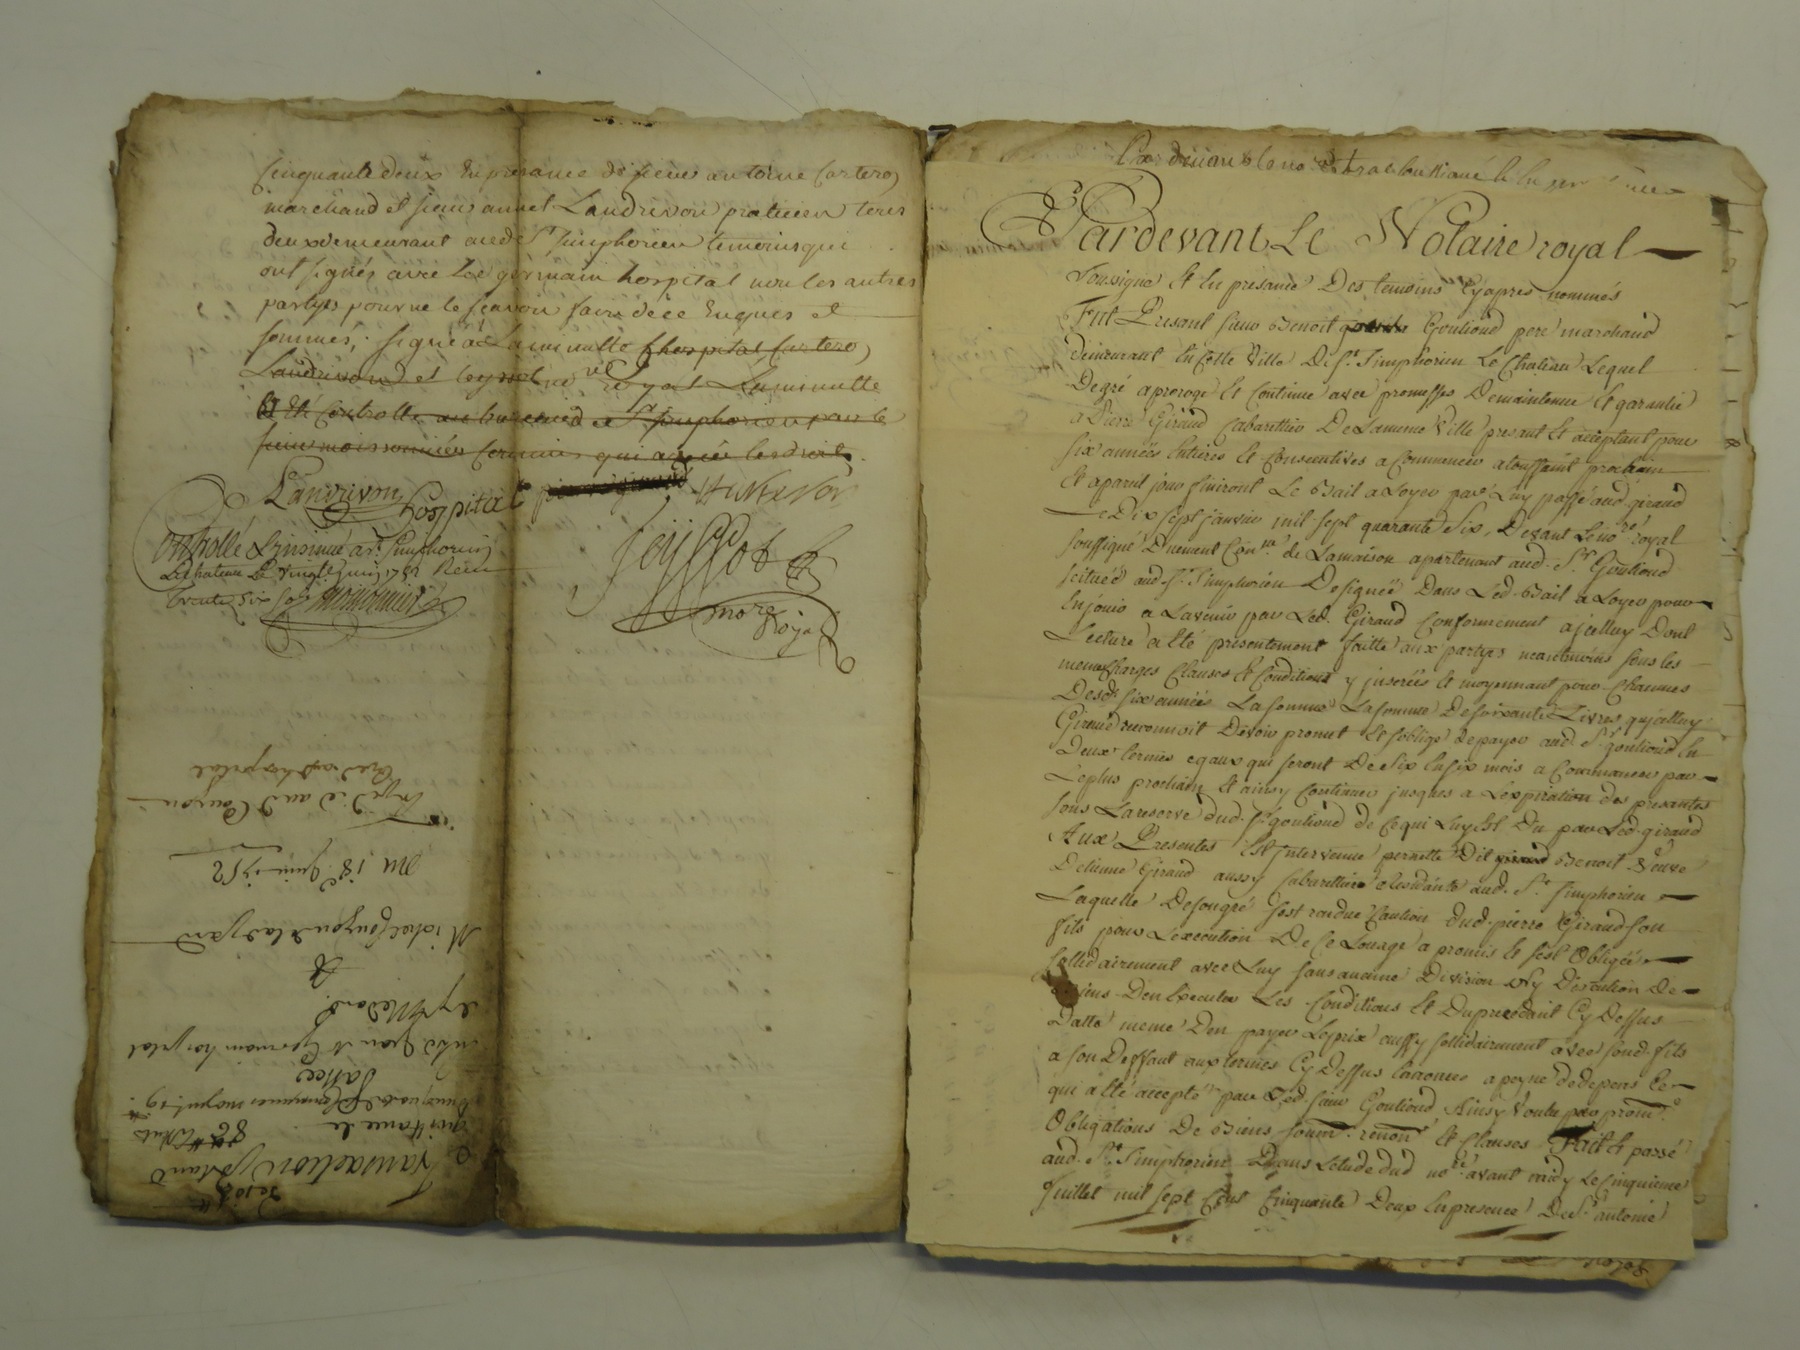 Cinquante deux En presance de sieur antoine Cartero
marchand et sieur annet Landrivon praticien tous
deux demeurant aud. St Simphorien temoins qui
ont signés avec led germain hospital non les autres
partyes pour ne le scavoir faire de ce Enquis et
sommés, signé a la minutte hospital, Cartero,
Landrivon et leyssot nore royal La minutte
a été Controllé au bureau de St Simphorien par le
sieur moissonnier Commis qui a reçu les droits
Landrivon hospital
Controllé & insinué a St Simphorien
Le chateau Le vingt juin 1752 Reçu
trente six sols moissonnier
leyssot
nore royal
Transaction portant
quittance de
entre Jean et Germain hospital
&
Michel Couzon
Du 18 Juin 1752
Expédié aud Couzon
Exped aud hospital
Pardevant Le Notaire royal
Soussigné Et En presance Des temoins Cy apres nommés
Fut Presant sieur Benoit Goutioud pere marchand
demeurant En Cette Ville De St. Simphorien Le Chateau Lequel
De gré a prorogé Et Continué avec promesses De maintenue Et garantie
a Pierre Giraud Cabarettier De La meme Ville presant Et acceptant pour
Six années Entieres Et Consecutives a Commencer a toussaint prochain
Et a pareil jour finiront Le Bail a Loyer par Luy passé aud. giraud
Le Dix sept janvier mil sept quarante Six, Devant Le nore. royal
soussigné Duement Con.lé de La maison apartenant aud. Sr. Goutioud
scituéé aud. St. Simphorien Designéé Dans Led. Bail a Loyer pour
En jouir a Lavenir par Led. Giraud Conformement a jcelluy Dont
Lecture a Eté presentement faitte aux partyes neantmoins sous les
memes Charges Clauses Et Conditions y jnserées Et moyennant pour Chacunes
Desd. six années La somme La somme De soixante Livres qu'jcelluy
Giraud reconnoit Devoir promet Et s'oblige de payer aud. Sr. goutioud En
Deux termes egaux qui seront De Six En Six mois a Commancer par
Le plus prochain Et ainsy Continuer jusques a L'expiration des presantes
sous La reserve dud. Sr. goutioud de Ce qui Luy Est Du par Led. giraud
Aux Presentes Est Intervenue pernette Benoit Veuve
D'etienne Giraud aussy Cabarettiere residante aud. St. Simphorien
Laquelle De son gré s'est rendue Caution dud. pierre Giraud son
fils pour L'execution De Ce Louage a promis Et s'est Obligéé
sollidairement avec Luy sans aucune Division Ny Discution De
Biens D'en Executer Les Conditions Et Du precedant Cy Dessus
Datté meme D'en payer Le prix aussy sollidairement avec sond. fils
a son Deffaut aux termes Cy Dessus Enoncés a peyne de depens Ce
qui a Eté accepté par Led. sieur Goutioud Ainsy Voulu par prom.
Obligations De Biens soum. renon. Et Clauses Fait Et passé
aud. St. Simphorien Dans L'etude dud nore. avant midy Le Cinquieme
Juillet mil sept Cent Cinquante Deux En presence De Sr. antoine